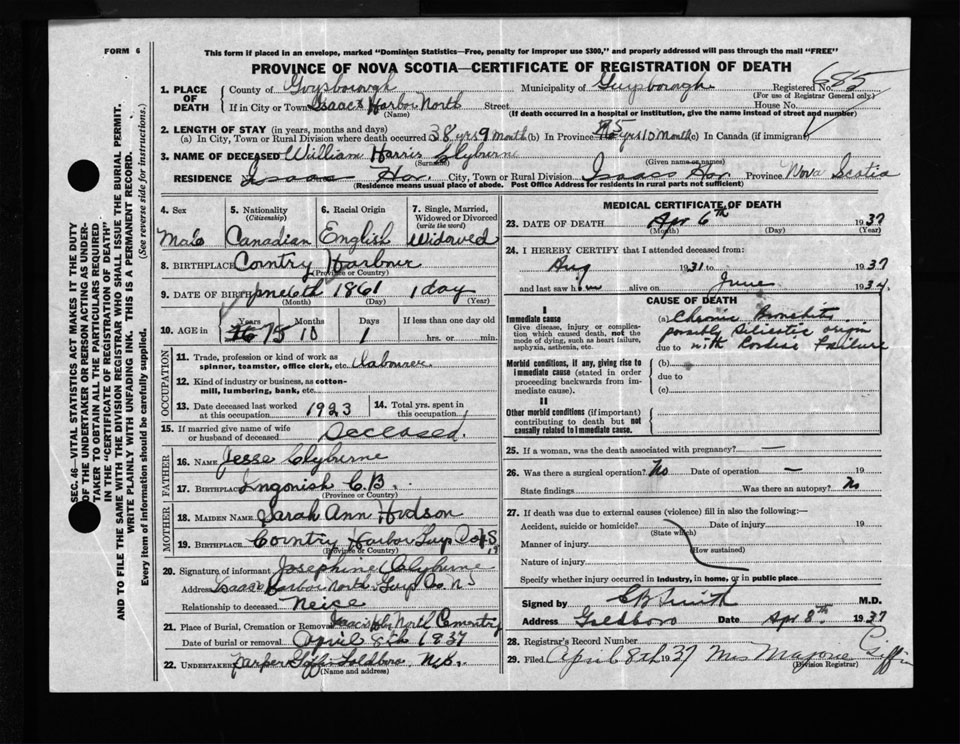 FORM 6
This form if placed in an envelope, marked "Dominion Statistics—Free, penalty for improper use $300," and properly addressed will pass through the mail "FREE"
PROVINCE OF NOVA SCOTIA—CERTIFICATE OF REGISTRATION OF DEATH
SEC. 46—VITAL STATISTICS ACT MAKES IT THE DUTY
OF THE UNDERTAKER OR PERSON ACTING AS UNDER-
TAKER TO OBTAIN ALL THE PARTICULARS REQUIRED
IN THE "CERTIFICATE OF REGISTRATION OF DEATH"
AND TO FILE THE SAME WITH THE DIVISION REGISTRAR WHO SHALL ISSUE THE BURIAL PERMIT.
WRITE PLAINLY WITH UNFADING INK. THIS IS A PERMANENT RECORD.
Every item of information should be carefully supplied. (See reverse side for instructions.)
1. PLACE OF DEATH
County of Guysborough Municipality of Guysborough Registered No. 685
(For use of Registrar General only.)
If in City or Town Isaacs Harbor North Street House No.
(Name) (If death occurred in a hospital or institution, give the name instead of street and number)
2. LENGTH OF STAY (in years, months and days)
(a) In City, Town or Rural Division where death occurred 38 yrs 9 month (b) In Province 75 yrs 10 month (c) In Canada (if immigrant)
3. NAME OF DECEASED William Harris Clyburne
(Surname) (Given name or names)
RESIDENCE Isaacs Har. City, Town or Rural Division Isaacs Har. Province Nova Scotia
(Residence means usual place of abode. Post Office Address for residents in rural parts not sufficient)
4. Sex Male
5. Nationality (Citizenship) Canadian
6. Racial Origin English
7. Single, Married, Widowed or Divorced (write the word) Widowed
8. BIRTHPLACE Country Harbour
(Province or Country)
9. DATE OF BIRTH June 6th 1861 1 day
(Month) (Day) (Year)
10. AGE in Years Months Days If less than one day old
75 10 1 hrs. or min.
OCCUPATION
11. Trade, profession or kind of work as spinner, teamster, office clerk, etc. Labourer
12. Kind of industry or business, as cotton-mill, lumbering, bank, etc.
13. Date deceased last worked at this occupation 1923
14. Total yrs. spent in this occupation
15. If married give name of wife or husband of deceased Deceased.
FATHER
16. NAME Jesse Clyburne
17. BIRTHPLACE Ingonish C.B.
(Province or Country)
MOTHER
18. MAIDEN NAME Sarah Ann Hudson
19. BIRTHPLACE Country Harbor Guy Co N.S.
(Province or Country)
20. Signature of informant Josephine Clyburne
Address Isaac's Harbor North Guy Co. N.S
Relationship to deceased Neice
21. Place of Burial, Cremation or Removal Isaacs Hbr North Cementry
Date of burial or removal April 8th 1937
22. UNDERTAKER Harper Giffin Goldboro N.S.
(Name and address)
MEDICAL CERTIFICATE OF DEATH
23. DATE OF DEATH Apr 6th 1937
(Month) (Day) (Year)
24. I HEREBY CERTIFY that I attended deceased from:
Aug 1931 to 1937
and last saw him alive on June 1934.
CAUSE OF DEATH
I
Immediate cause
Give disease, injury or complication which caused death, not the mode of dying, such as heart failure, asphyxia, asthenia, etc.
(a) Chronic Bronchitis
possibly Silicotic origin
due to with Cardiac Failure
Morbid conditions, if any, giving rise to immediate cause (stated in order proceeding backwards from immediate cause).
(b)
due to
(c)
II
Other morbid conditions (if important) contributing to death but not causally related to immediate cause.
25. If a woman, was the death associated with pregnancy? —
26. Was there a surgical operation? No Date of operation — 19
State findings Was there an autopsy? No
27. If death was due to external causes (violence) fill in also the following:—
Accident, suicide or homicide? Date of injury 19
(State which)
Manner of injury
(How sustained)
Nature of injury
Specify whether injury occurred in industry, in home, or in public place
Signed by C B Smith M.D.
Address Goldboro Date Apr. 8th 1937
28. Registrar's Record Number
29. Filed April 8th 1937 Mrs Majorie Giffin
(Division Registrar)